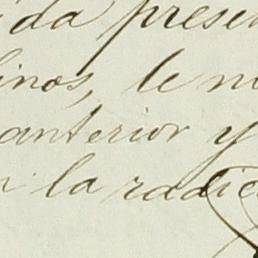 ida presen
inos, le no
anterior y
n la radica